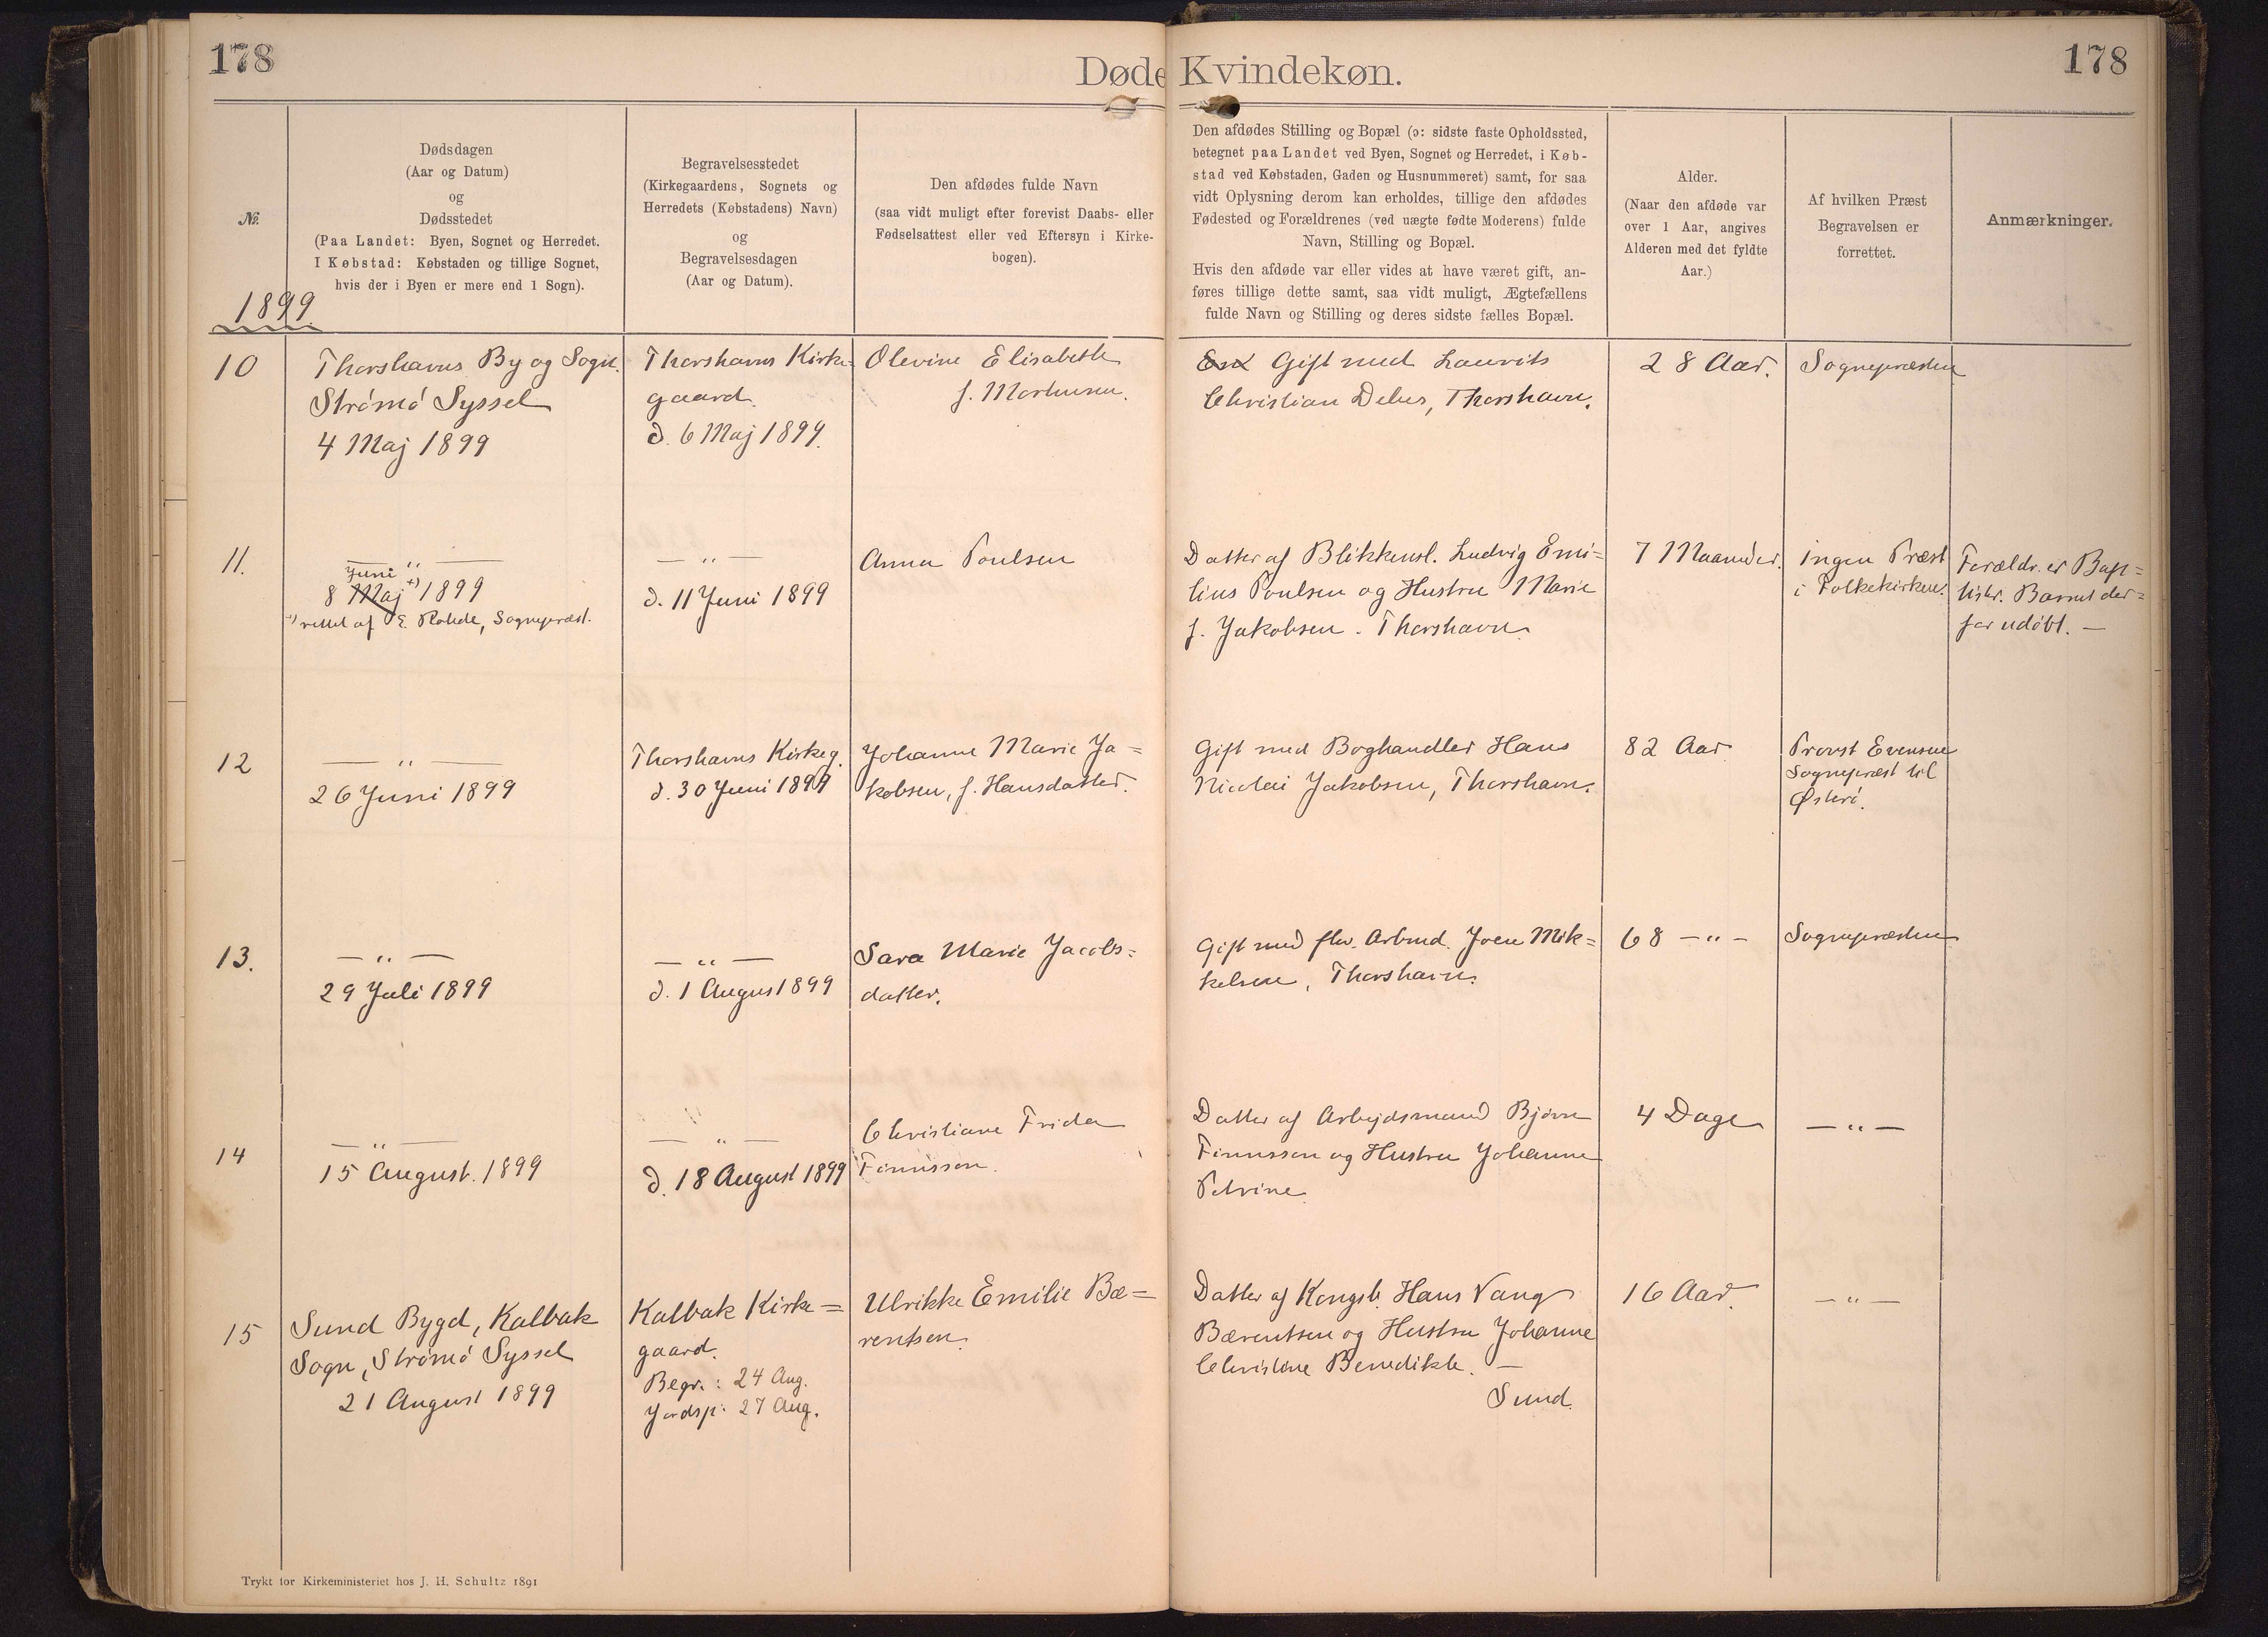 178
Døde Kvindekøn.
178
№.
1899
Dødsdagen
(Aar og Datum)
og
Dødsstedet
(Paa Landet: Byen, Sognet og Herredet.
I Købstad: Købstaden og tillige Sognet,
hvis der i Byen er mere end 1 Sogn).
Begravelsesstedet
(Kirkegaardens, Sognets og
Herredets (Købstadens) Navn)
og
Begravelsesdagen
(Aar og Datum).
Den afdødes fulde Navn
(saa vidt muligt efter forevist Daabs- eller
Fødselsattest eller ved Eftersyn i Kirke-
bogen).
Den afdødes Stilling og Bopæl (ɔ: sidste faste Opholdssted,
betegnet paa Landet ved Byen, Sognet og Herredet, i Køb-
stad ved Købstaden, Gaden og Husnummeret) samt, for saa
vidt Oplysning derom kan erholdes, tillige den afdødes
Fødested og Forældrenes (ved uægte fødte Moderens) fulde
Navn, Stilling og Bopæl.
Hvis den afdøde var eller vides at have været gift, an-
føres tillige dette samt, saa vidt muligt, Ægtefællens
fulde Navn og Stilling og deres sidste fælles Bopæl.
Alder.
(Naar den afdøde var
over 1 Aar, angives
Alderen med det fyldte
Aar.)
Af hvilken Præst
Begravelsen er
forrettet.
Anmærkninger.
10
Thorshavns By og Sogn.
Strömö Syssel
4 Maj 1899
Thorshavns Kirke-
gaard.
d. 6 Maj 1899.
Olevine Elisabeth
f. Morhusen.
Gift med Laurits
Christian Debes, Thorshavn.
28 Aar.
Sognepræsten
11.
— " —
Juni
8 Maj +) 1899
+) rettet af E. Rohde, Sognepræst.
— " —
d. 11 Juni 1899
Anna Poulsen
Datter af Blikkensl. Ludvig Emi=
lius Poulsen og Hustru Marie
f. Jakobsen. Thorshavn.
7 Maaneder.
Ingen Præst
i Folkekirken.
Forældr. er Bap=
tister. Barnet der=
for udøbt. —
12
— " —
26 Juni 1899
Thorshavns Kirkeg.
d. 30 Juni 1899
Johanne Marie Ja=
kobsen, f. Hansdatter.
Gift med Boghandler Hans
Nicolai Jakobsen, Thorshavn.
82 Aar
Provst Evensen
Sognepræst til
Østerö.
13.
— " —
29 Juli 1899
— " —
d. 1 August 1899
Sara Marie Jacobs=
datter.
Gift med fhv. Arbmd. Joen Mik=
kelsen, Thorshavn.
68 — " —
Sognepræsten
14
— " —
15 August. 1899
— " —
d. 18 August 1899
Christiane Frida
Finnsson.
Datter af Arbejdsmand Bjørn
Finnsson og Hustru Johanne
Petrine
4 Dage
— " —
15
Sund Bygd, Kalbak
Sogn, Strömö Syssel
21 August 1899
Kalbak Kirke=
gaard.
Begr.: 24 Aug.
Jordsp: 27 Aug.
Ulrikke Emilie Bæ=
rentsen.
Datter af Kongsb. Hans Vang
Bærentsen og Hustru Johanne
Christine Benedikte. —
Sund.
16 Aar.
— " —
Trykt for Kirkeministeriet hos J. H. Schultz 1891